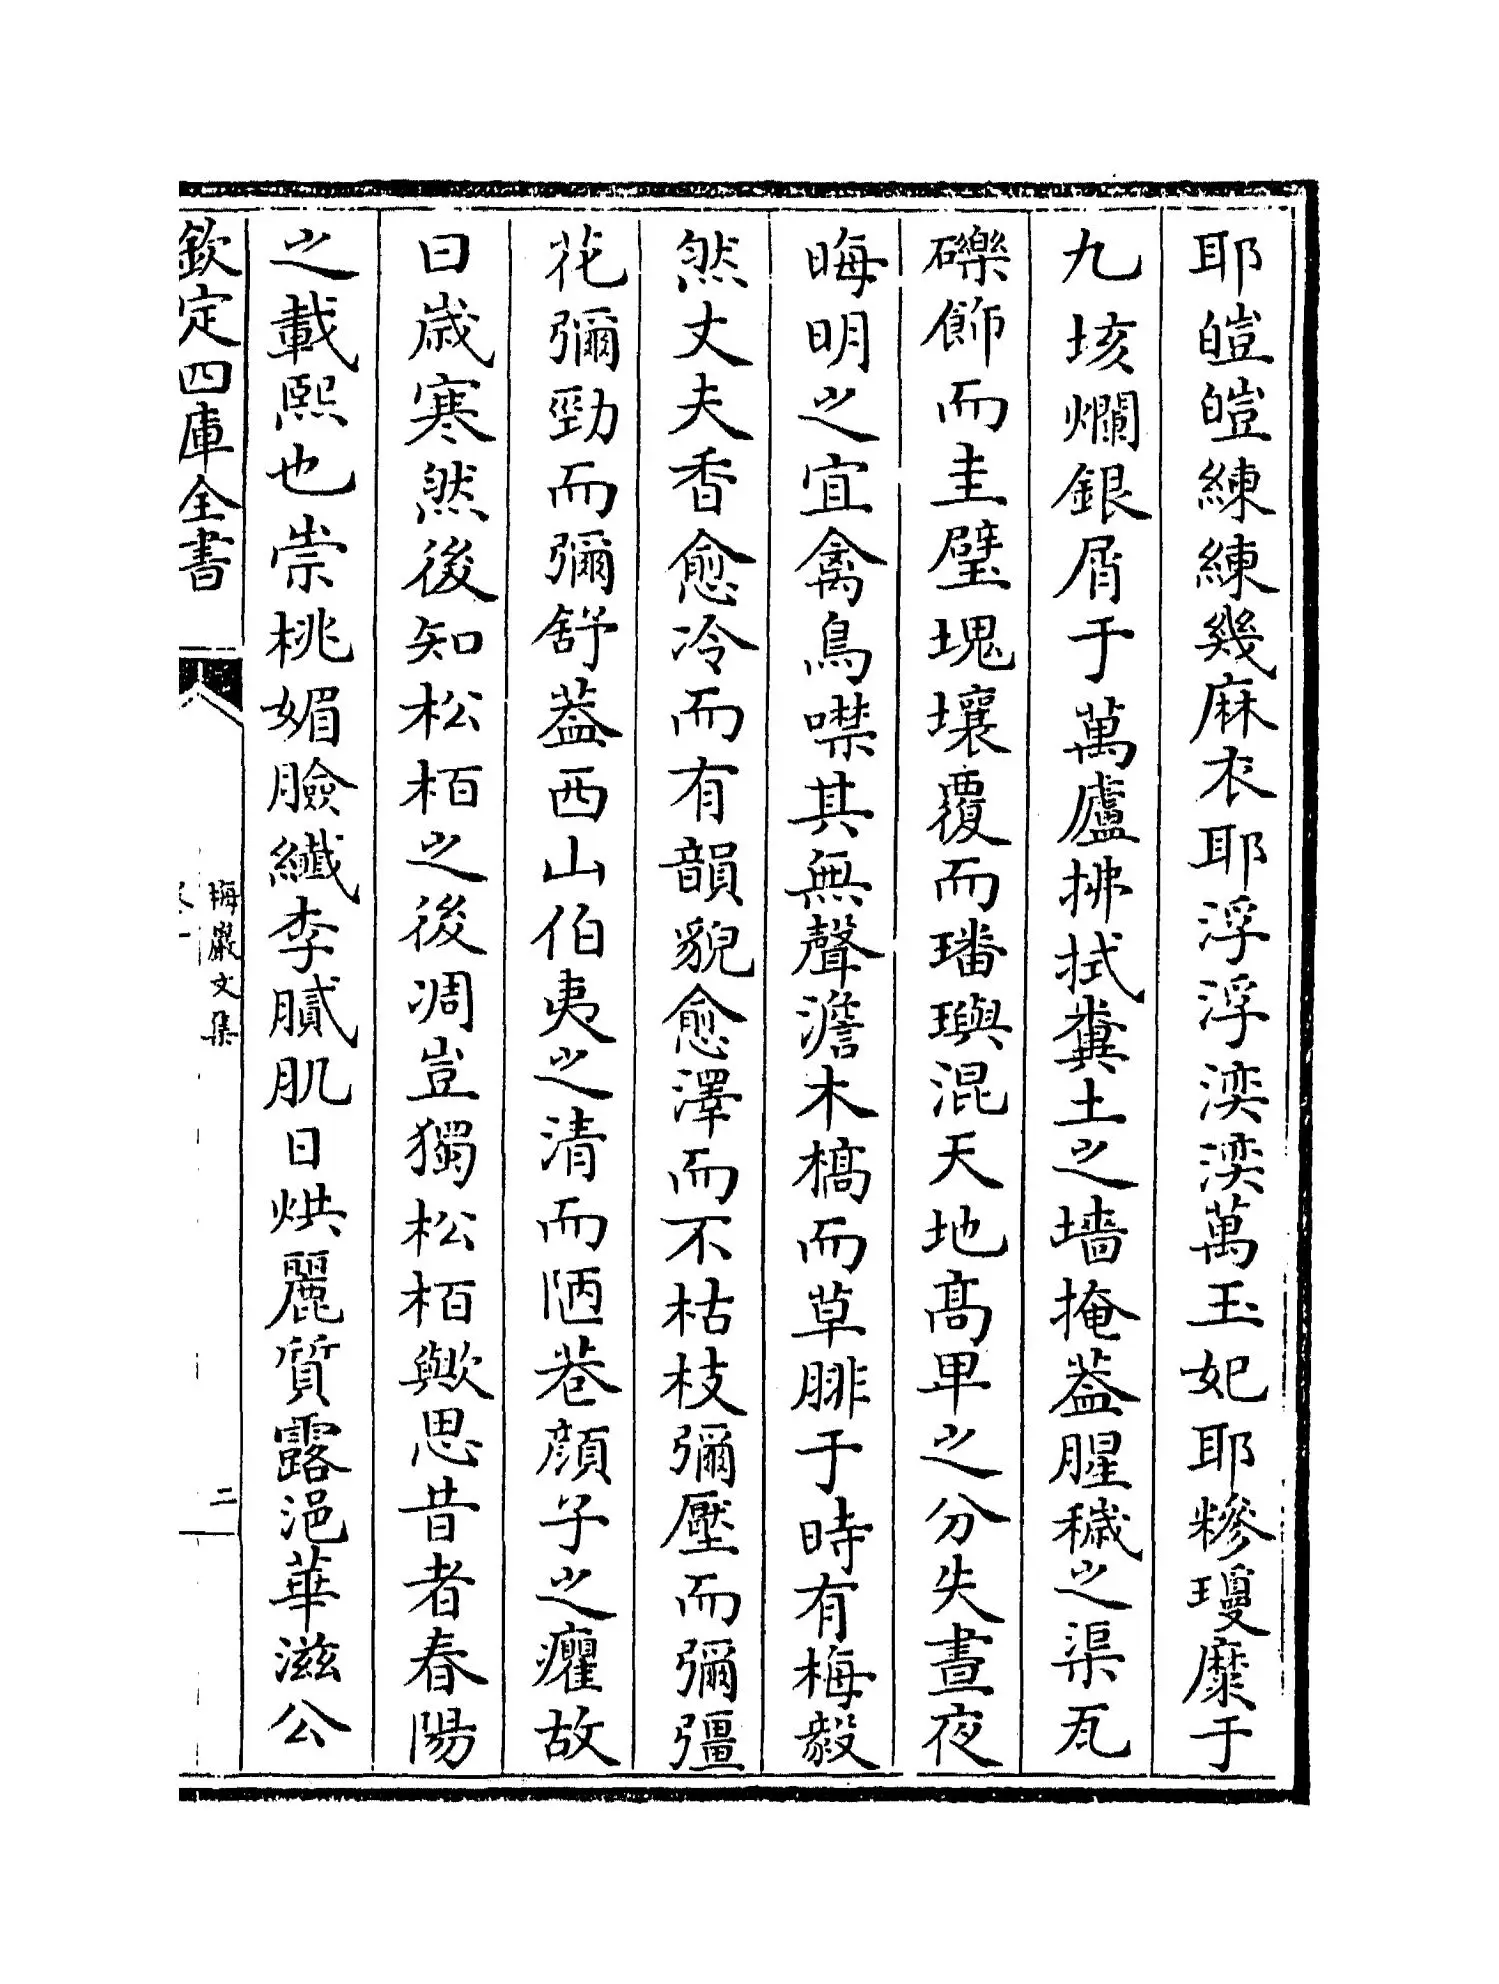 耶皚皚練練幾麻衣耶浮浮渶渶萬玉妃耶糝瓊糜于
九垓爛銀屑于萬廬拂拭糞土之墻掩葢腥穢之渠瓦
礫飾而圭璧塊壤覆而璠璵混天地髙卑之分失晝夜
晦明之宜禽鳥噤其無聲澹木槁而草腓于時有梅毅
然丈夫香愈冷而有韻貌愈澤而不枯枝彌壓而彌彊
花彌勁而彌舒葢西山伯夷之清而陋巷顔子之癯故
曰歲寒然後知松栢之後凋豈獨松栢歟思昔者春陽
之載熙也崇桃媚臉纎李膩肌日烘麗質露浥華滋公
欽定四庫全書
梅巖文集
二